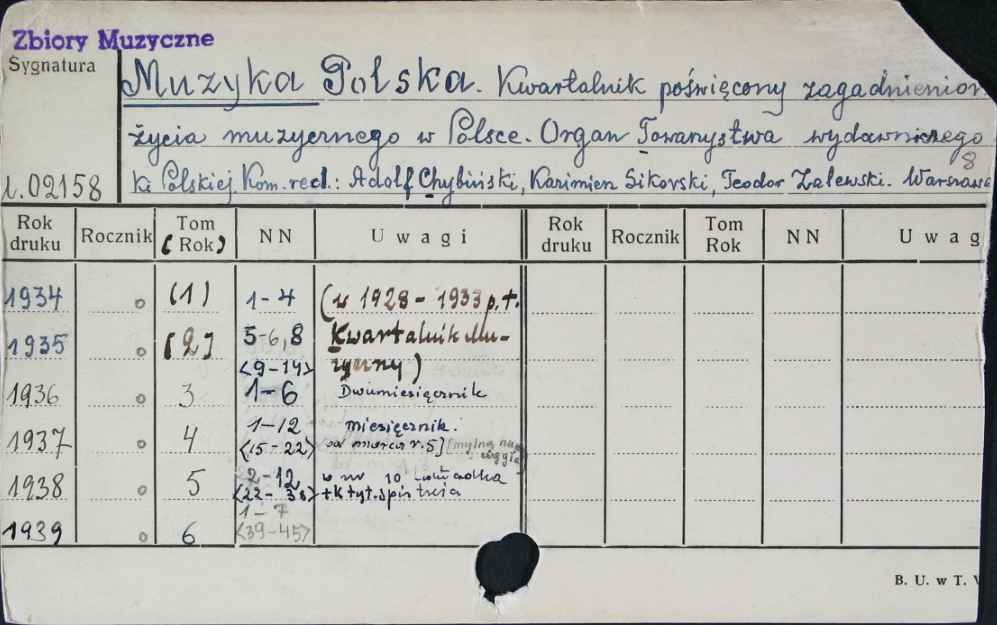 Zbiory Muzyczne
Sygnatura
Muzyka Polska. Kwartalnik poświęcony zagadnieniom
życia muzycznego w Polsce. Organ Towarzystwa wydawniczego
8
ki Polskiej. Kom. red.: Adolf Chybiński, Kazimierz Sikorski, Teodor Zalewski. Warszawa
02158
Rok druku Rocznik Tom (Rok) NN Uwagi Rok druku Rocznik Tom Rok NN Uwag
1934 o (1) 1-4 (w 1928-1933 p.t.
1935 o [2] 5-6,8 Kwartalnik Mu-
<9-14> zyczny)
1936 o 3 1-6 Dwumiesięcznik
1937 o 4 1-12 miesięcznik.
<15-22> od marca r. 5] [mylna
1938 o 5 2-12 w nr 10
<22-38> +k tyt. spis treści
1-7
1939 o 6 <39-45>
B. U. w T.